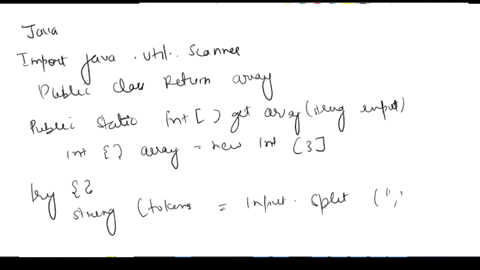 Java
Import java . util . Scanner
Public Class Return array
Public Static Int [ ) get array (string input)
int { } array = new int ( 3 ]
try { }
string ( tokens = input . split ( ","